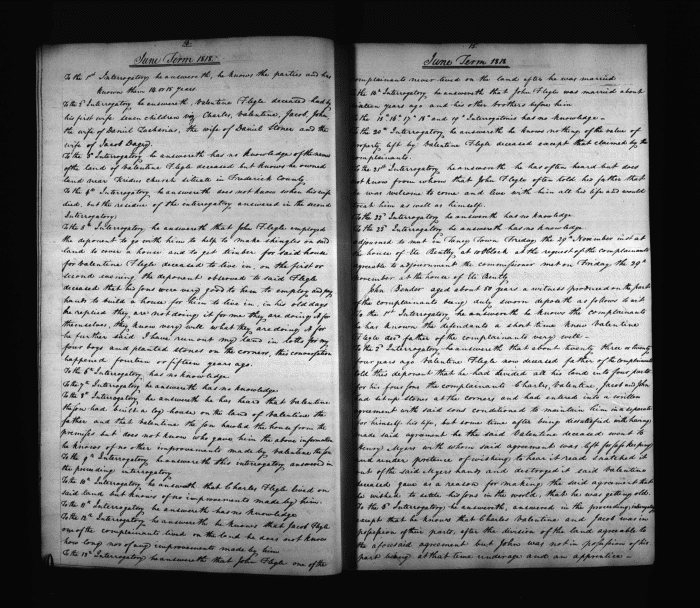 14
June Term 1818
To the 1st Interrogatory he answereth, he knows the parties and has
known them 14 or 15 years
To the 2d Interrogatory he answereth, Valentine Flegle deceased had by
his first wife seven children viz. Charles, Valentine, Jacob, John,
the wife of Daniel Zacharias, the wife of Daniel Stoner and the
wife of Jacob
To the 3d Interrogatory, he answereth has no knowledge of the names
of the land of Valentine Flegle deceased but knows he owned
land near church situate in Frederick County
To the 4th Interrogatory, he answereth does not know when his wife
died, but the residue of the interrogatory answered in the second
Interrogatory
To the 5th Interrogatory, he answereth that John Flegle employed
the deponent to go with him to help to make shingles on said
land to cover a house and to get timber for said house
for Valentine Flegle deceased to live in, on the first or
second evening the deponent observed to said Flegle
deceased that his sons were very good to him to employ and pay
hands to build a house for him to live in, in his old days
he replied they are not doing it for me they are doing it for
themselves, they know very well what they are doing it for
he further said I have run out my land in lots for my
four boys and planted stones on the corners, this conversation
happened fourteen or fifteen years ago.
To the 6th Interrogatory, has no knowledge
To the 7th Interrogatory he answereth has no knowledge
To the 8th Interrogatory, he answereth he has heard that Valentine
the son had built a log house on the land of Valentine the
father and that Valentine the son hauled the house from the
premises but does not know who gave him the above information
he knows of no other improvements made by Valentine the son
To the 9th Interrogatory, he answereth this interrogatory answered in
the preceeding interrogatory
To the 10th Interrogatory, he answereth that Charles Flegle lived on
said land but knows of no improvements made by him.
To the 11th Interrogatory, he answereth has no knowledge
To the 12th Interrogatory, he answereth he knows that Jacob Flegle
one of the complainants lived on the land he does not know
how long nor of any improvements made by him
To the 13th Interrogatory he answereth that John Flegle one of the
15
June Term 1818
complainants never lived on the land after he was married
To the 14th Interrogatory, he answereth that John Flegle was married about
sixteen years ago and his other brothers before him
To the 15th 16th 17th 18th and 19th Interrogatories has no knowledge
To the 20th Interrogatory, he answereth he knows nothing of the value of
property left by Valentine Flegle deceased except that claimed by the
complainants.
To the 21st Interrogatory, he answereth he has often heard but does
not know from whom that John Flegle often told his father that
he was welcome to come and live with him all his life and would
treat him as well as himself.
To the 22d Interrogatory he answereth has no knowledge
To the 23d Interrogatory, he answereth has no knowledge
adjourned to meet in Taney Town Friday the 29th November inst at
the house of at oClock at the request of the complainants
agreeable to adjournment the commissioner met on Friday the 29th
November, at the house of
John aged about 50 years a witness produced on the part
of the complainants being duly sworn deposeth as follows to wit
To the 1st Interrogatory, he answereth he knows the complainants
he has known the defendants a short time knew Valentine
Flegle decd father of the complainants very well
To the 2d Interrogatory, he answereth that about twenty three or twenty
four years ago Valentine Flegle now deceased father of the complainants
told this deponent that he had divided all his land into four parts
for his four sons the complainants Charles, Valentine, Jacob and John
had set up stones at the corners and had entered into a written
agreement with said sons conditioned to maintain him
for himself his life, but some time after being dissatisfied with having
made said agreement he the said Valentine deceased went to
Henry Myers with whom said agreement was left for safe keeping
and under pretence of wishing to hear it read snatched it
out of the said Myers hands and destroyed it said Valentine
deceased gave as a reason for making the said agreement that
he wished to settle his sons in the world, that he was getting old.
To the 3d Interrogatory, he answereth, answered in the preceeding interrogatory
except that he knows that Charles, Valentine and Jacob was in
possession of their parts, after the division of the land agreeable to
the aforesaid agreement but John was not in possession of his
part being at that time underage and an apprentice